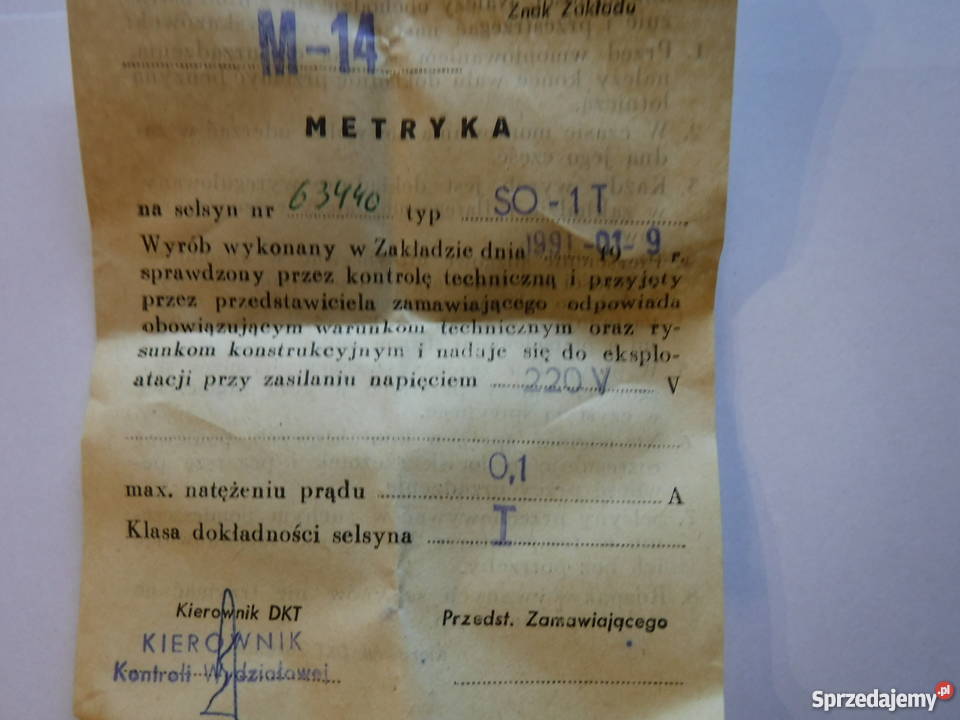 Znak Zakładu
M-14
METRYKA
na selsyn nr 63440 typ SO-1T
Wyrób wykonany w Zakładzie dnia 1991-01-9 19 r.
sprawdzony przez kontrolę techniczną i przyjęty
przez przedstawiciela zamawiającego odpowiada
obowiązującym warunkom technicznym oraz ry-
sunkom konstrukcyjnym i nadaje się do eksplo-
atacji przy zasilaniu napięciem 220 V V
0,1
max. natężeniu prądu A
Klasa dokładności selsyna I
Kierownik DKT
Przedst. Zamawiającego
KIEROWNIK
Kontroli Wydziałowej
Sprzedajemy.pl